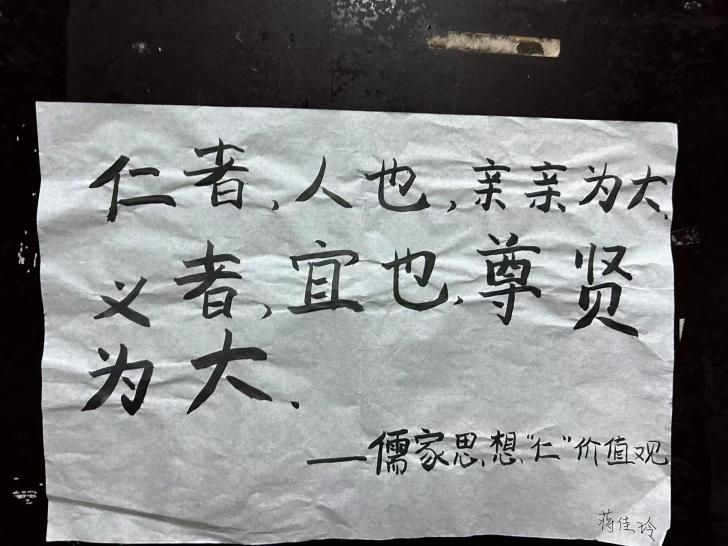 仁者,人也,亲亲为大.
义者,宜也,尊贤
为大.
——儒家思想“仁”价值观
蒋佳玲